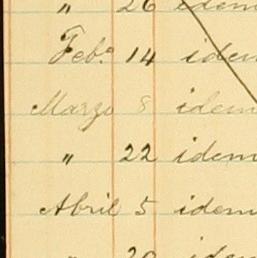 " 26 idem
Feb.º 14 idem
Marzo 8 idem
" 22 idem
Abril 5 idem
" 20 idem